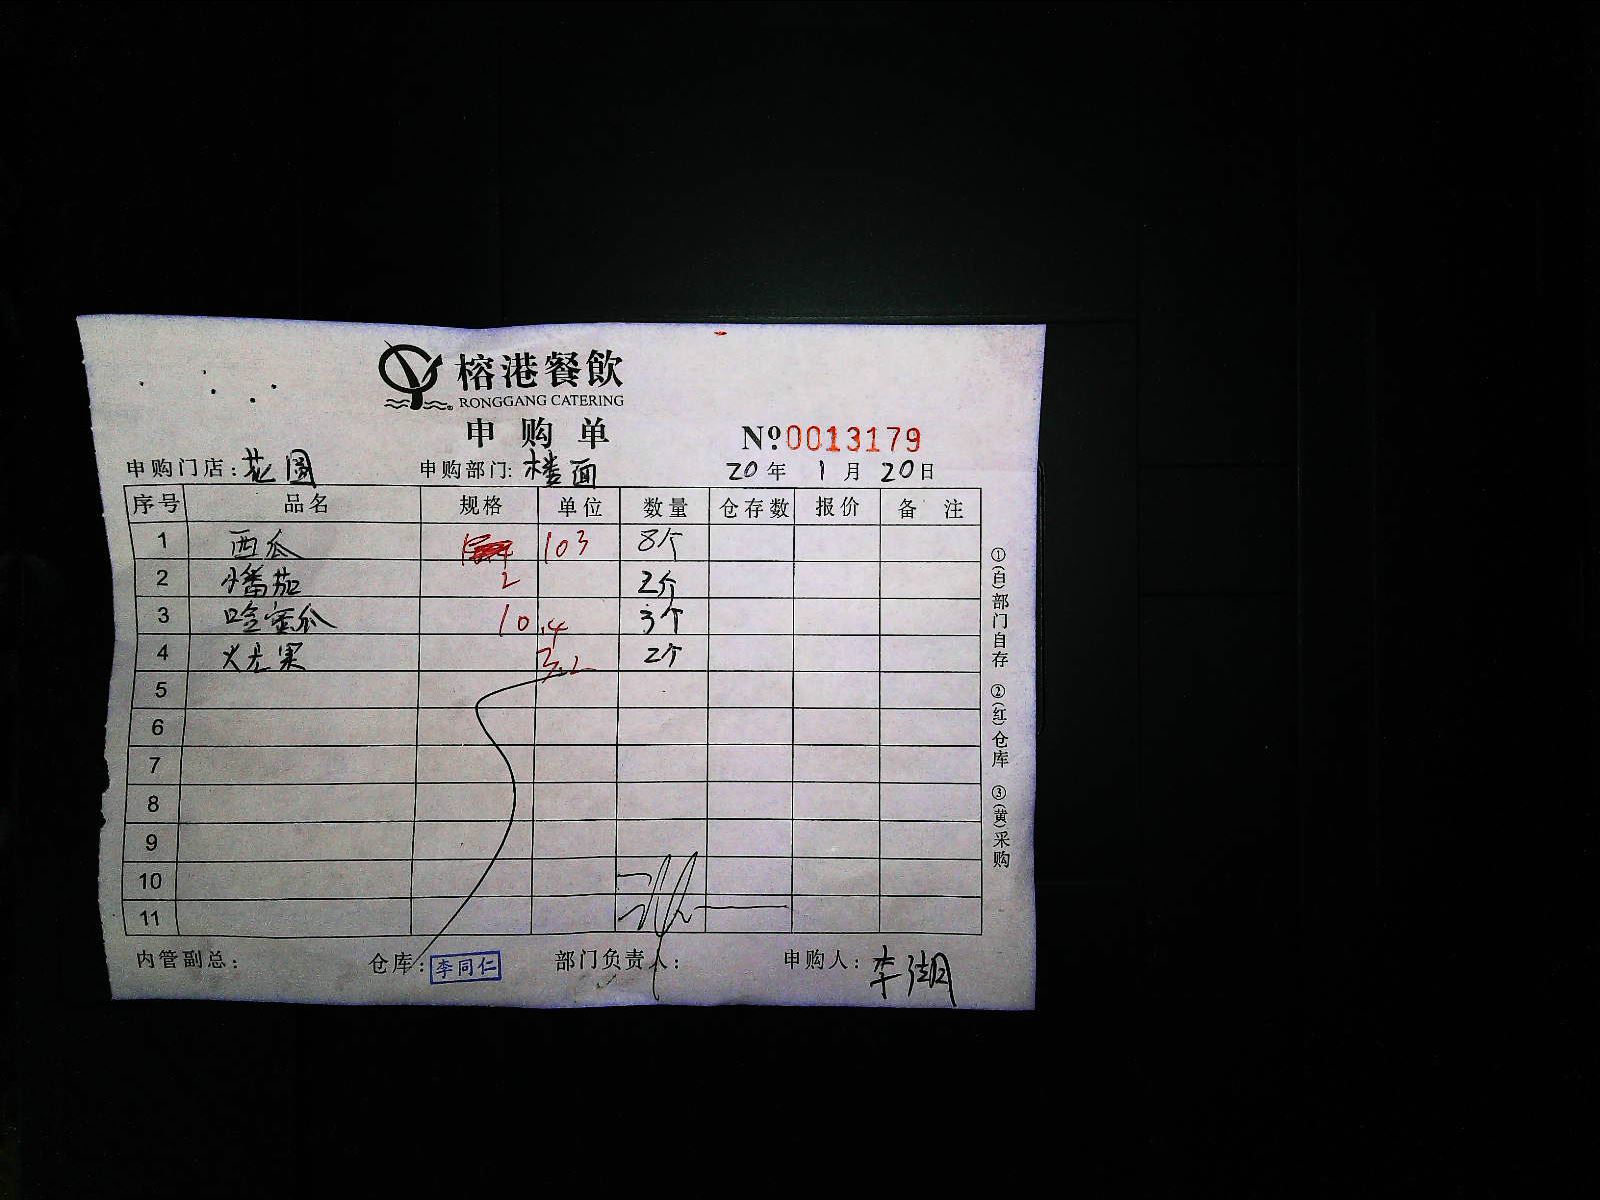 榕港餐飲
RONGGANG CATERING
申购单
№0013179
申购门店:花园 申购部门:楼面 20年1月20日
序号 品名 规格 单位 数量 仓存数 报价 备注
1 西瓜 103 8个
2 小番茄 2 2个
3 哈蜜瓜 10.4 3个
4 火龙果 3.2 2个
5
6
7
8
9
10
11
内管副总: 仓库:李同仁 部门负责人: 申购人:李湖
①(白)部门自存 ②(红)仓库 ③(黄)采购